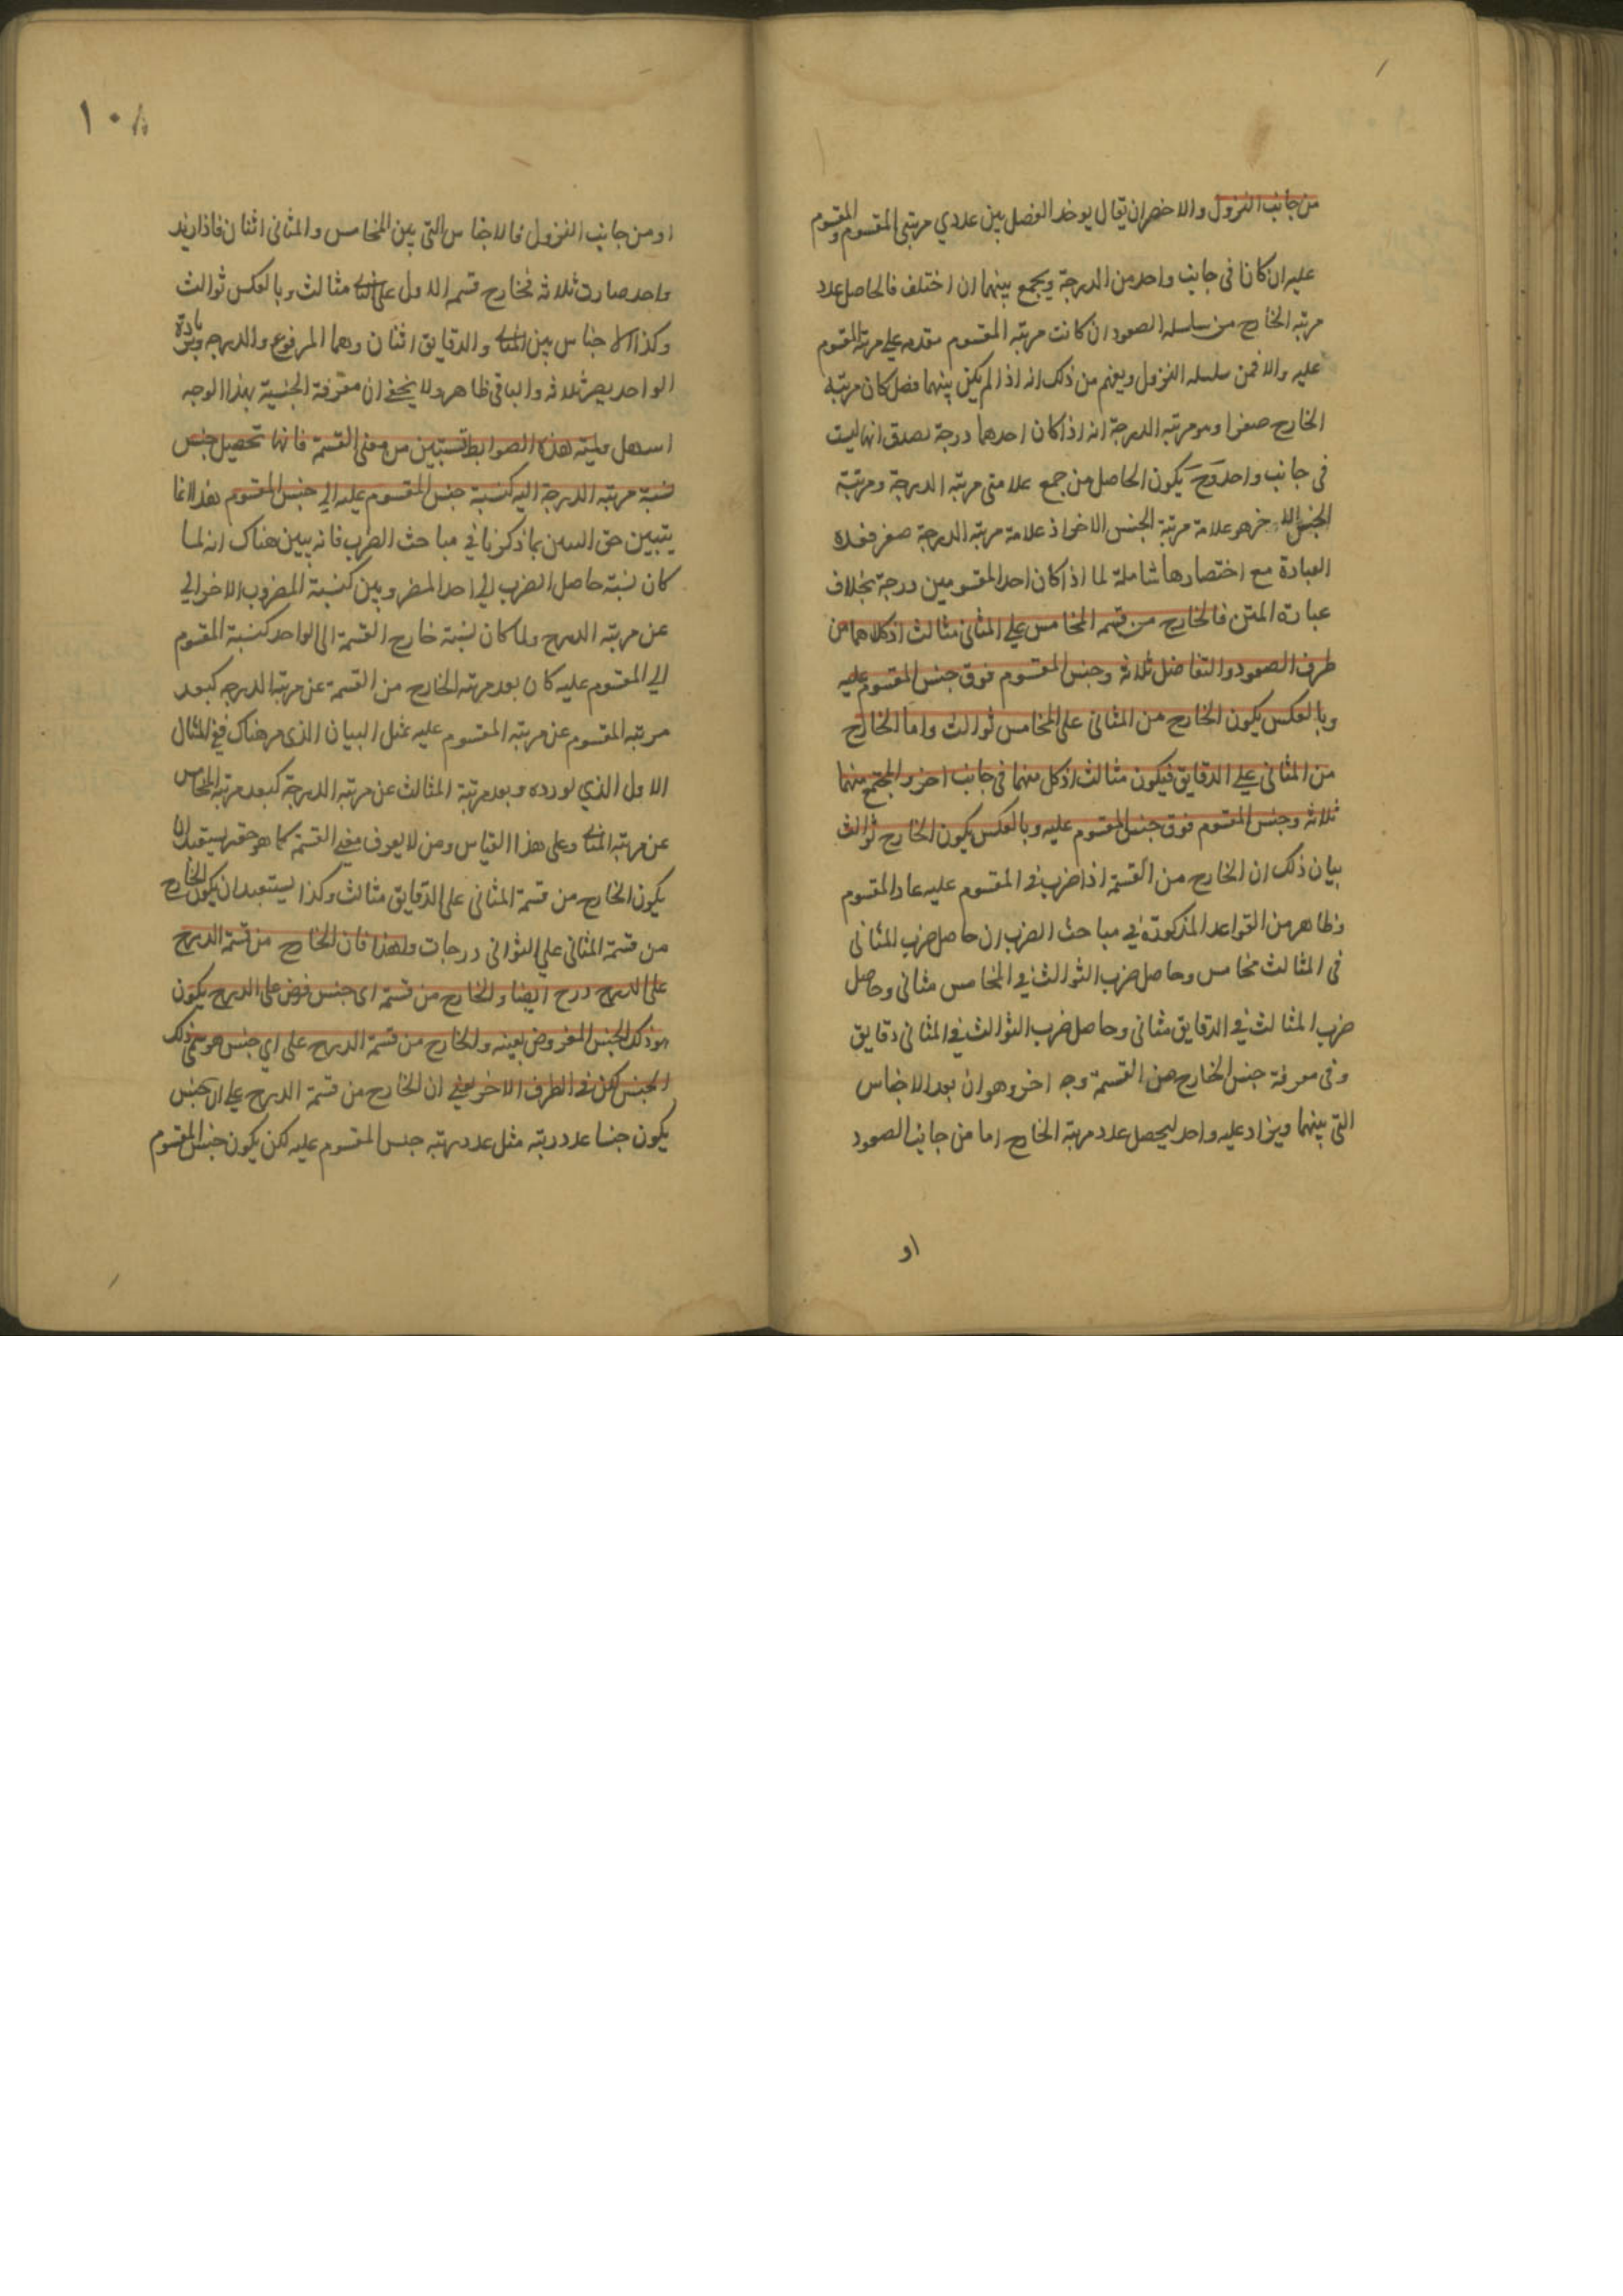 من جانب النزول والاخصران يقال يوخذ الفضل بين عددي مرتبتي المقسوم والمقسوم
عليه ان كانا في جانب واحد من الدرجة ويجمع بينهما ان اختلف فالحاصل عدد
مرتبة الخارج من سلسلة الصعود ان كانت مرتبة المقسوم مقدمه علي مرتبة المقسوم
عليه والا فمن سلسلة النزول ويعلم من ذلك انه اذا لم يكن بينهما فضل كان مرتبة
الخارج صفرا وهو مرتبة الدرجة انه اذا كان احدهما درجة لصدق انها ليست
في جانب واحد وح يكون الحاصل من جمع علامتي مرتبة الدرجة ومرتبة
الجنس الاخر هو علامة مرتبة الجنس الاخر اذ علامة مرتبة الدرجة صفر فهذه
العبارة مع اختصارها شاملة لما اذا كان احد المقسومين درجة بخلاف
عبارة المتن فالخارج من قسمة المخامس علي المثاني مثالث اذ كلاهما من
طرف الصعود والتفاضل ثلاثه وجنس المقسوم فوق جنس المقسوم عليه
وبالعكس يكون الخارج من المثاني علي المخامس ثوالث واما الخارج
من المثاني علي الدقايق فيكون مثالث اذ كل منهما في جانب اخر والمجتمع منهما
ثلاثه وجنس المقسوم فوق جنس المقسوم عليه وبالعكس يكون الخارج ثوالث
بيان ذلك ان الخارج من القسمة اذا ضرب في المقسوم عليه عاد المقسوم
وظاهر من القواعد المذكورة في مباحث الضرب ان حاصل ضرب المثاني
في المثالث مخامس وحاصل ضرب الثوالث في المخامس مثاني وحاصل
ضرب المثالث في الدقايق مثاني وحاصل ضرب الثوالث في المثاني دقايق
وفي معرفة جنس الخارج من القسمة وجه اخر وهو ان بعد الاجناس
التي بينهما ويزاد عليه واحد ليحصل عدد مرتبة الخارج اما من جانب الصعود
او
١٠٨
او من جانب النزول فالاجناس التي بين المخامس والمثاني اثنان فاذا زيد
واحد صارت ثلاثه فخارج قسمة الاول علي الثاني مثالث وبالعكس ثوالث
وكذا الاجناس بين المثاني والدقايق اثنان وهما المرفوع والدرجه وبزيادة
الواحد يصير ثلاثه والباقي ظاهر ولا يخفي ان معرفة الجنسية بهذا الوجه
اسهل ولمية هذه الضوابط تستبين من معني القسمة فانها تحصيل جنس
نسبة مرتبة الدرجة اليه كنسبة جنس المقسوم عليه الي جنس المقسوم هذا انما
يتبين حق التبين بما ذكرنا في مباحث الضرب فانه يبين هناك انه لما
كان نسبة حاصل الضرب الي احد المضروبين كنسبة المضروب الاخر الي
عن مرتبه الدرج ولما كان نسبة خارج القسمة الي الواحد كنسبة المقسوم
الي المقسوم عليه كان بعد مرتبة الخارج من القسمة عن مرتبة الدرجه كبعد
مرتبه المقسوم عن مرتبه المقسوم عليه بمثل البيان الذي مر هناك ففي المثال
الاول الذي اورده وبعد مرتبة المثالث عن مرتبة الدرجة كبعد مرتبة المخامس
عن مرتبة المثاني وعلي هذا القياس ومن لا يعرف معني القسمة كما هو حقه يستبعد ان
يكون الخارج من قسمة المثاني علي الدقايق مثالث وكذا يستبعد ان يكون الخارج
من قسمة المثاني علي الثواني درجات ولهذا فان الخارج من قسمة الدرج
علي الدرج درج ايضا والخارج من قسمة اي جنس فرض علي الدرج يكون
هو ذلك الجنس المفروض بعينه والخارج من قسمة الدرج علي اي جنس هو سمي ذلك
الجنس لكن في الطرف الاخر يعني ان الخارج من قسمة الدرج علي اي جنس
يكون جنسا عدد رتبته مثل عدد مرتبه جنس المقسوم عليه لكن يكون جنس المقسوم